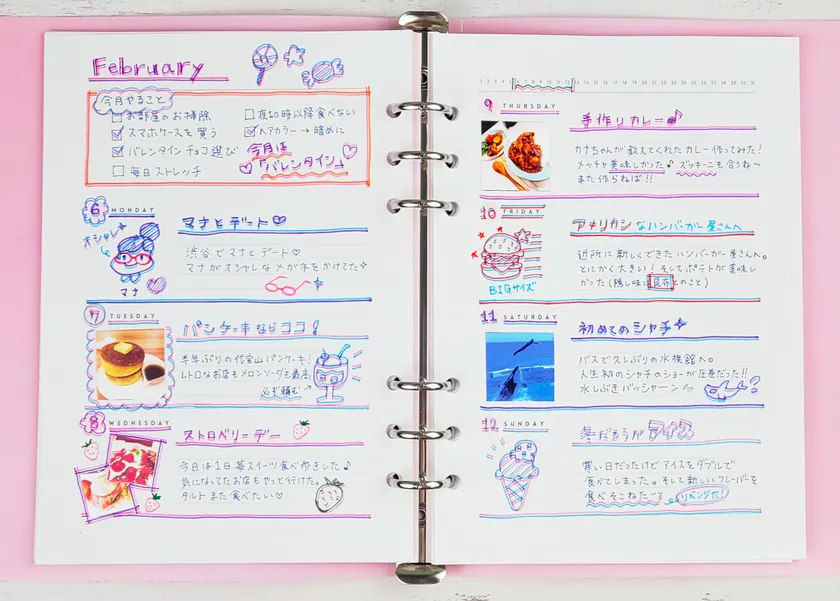 February
今月やること
お部屋のお掃除
スマホケースを買う
バレンタインチョコ選び
毎日ストレッチ
夜10時以降食べない
ヘアカラー → 暗めに
今月は
「バレンタイン」
6 MONDAY
マナとデート♡
オシャレ
マナ
渋谷でマナとデート♡
マナがオシャレなメガネをかけてた
7 TUESDAY
パンケーキならココ!
半年ぶりの代官山パンケーキ!
レトロなお店もメロンソーダも最高
必ず頼む
8 WEDNESDAY
ストロベリーデー
今日は1日苺スイーツ食べ歩きした♪
気になってたお店もやっと行けた。
タルトまた食べたい♡
1 2 3 4 5 6 7 8 9 10 11 12 13 14 15 16 17 18 19 20 21 22 23 24 25 26 27 28 29 30 31
9 THURSDAY
手作りカレー♪
カナちゃんが教えてくれたカレー作ってみた!
メッチャ美味しかった♪ ズッキーニも合うね〜
また作らねば!!
10 FRIDAY
アメリカンなハンバーガー屋さんへ
BIGサイズ
近所に新しくできたハンバーガー屋さん。
とにかく大きい!そしてポテトが美味し
かった(隠し味は昆布とのこと)
11 SATURDAY
初めてのシャチ
バスで久しぶりの水族館へ。
人生初のシャチのショーが圧巻だった!!
水しぶきバッシャーン
12 SUNDAY
冬だろうがアイス
寒い日だったけどアイスをダブルで
食べてしまった。そして新しいフレーバーを
食べそこねた〜る
リベンジだ!